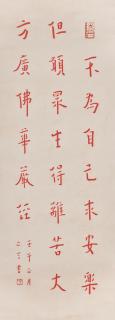 不為自己求安樂
但願眾生得離苦
大方廣佛華嚴經